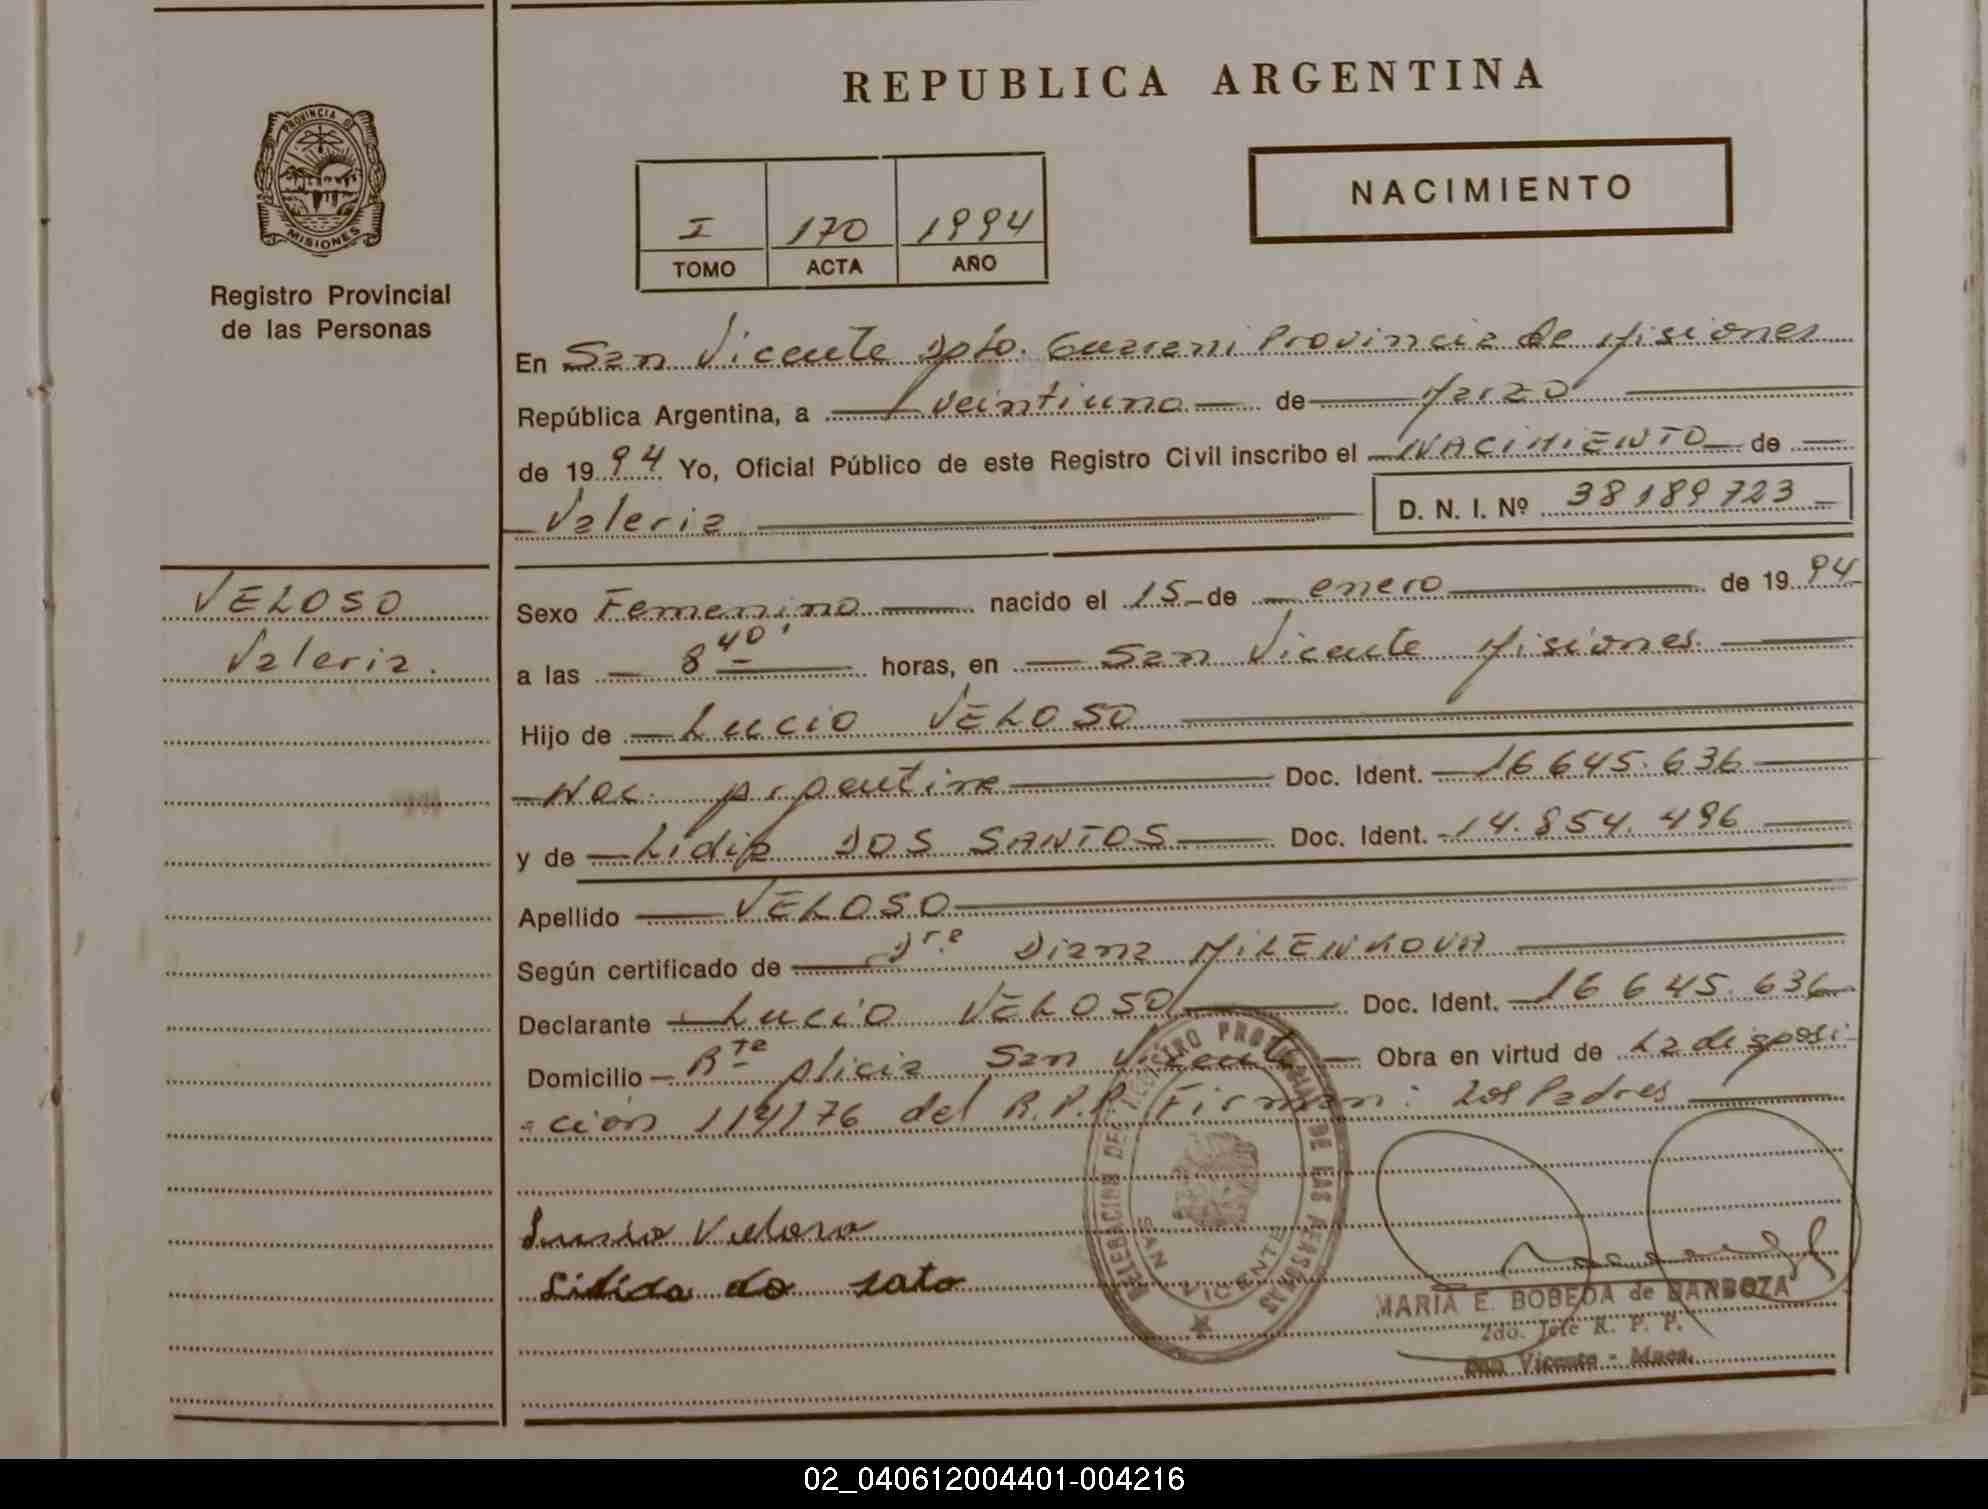 REPUBLICA ARGENTINA
PROVINCIA DE
MISIONES
Registro Provincial
de las Personas
NACIMIENTO
I 170 1994
TOMO ACTA AÑO
En San Vicente Dpto. Guarani Provincia de Misiones
República Argentina, a veintiuno de Marzo
de 1994 Yo, Oficial Público de este Registro Civil inscribo el NACIMIENTO de
Valeria D. N. I. Nº 38189723
VELOSO
Valeria.
Sexo Femenino nacido el 15 de enero de 1994
a las 8 40' horas, en San Vicente Misiones.
Hijo de Lucio VELOSO
Nac. Argentina Doc. Ident. 16645.636
y de Lidia DOS SANTOS Doc. Ident. 14.854.496
Apellido VELOSO
Según certificado de Dra Diana MILENKOVA
Declarante Lucio VELOSO Doc. Ident. 16645.636
Domicilio Rte Alicia San Vicente Obra en virtud de La disposi-
-ción 114/76 del R.P.P. Firman: Los Padres
DELEGACION DEL REGISTRO PROVINCIAL DE LAS PERSONAS
SAN VICENTE
Veloso
do sato
MARIA E. BOBEDA de BARBOZA
2do. Jefe R. P. P.
San Vicente - Mnes.
02_040612004401-004216